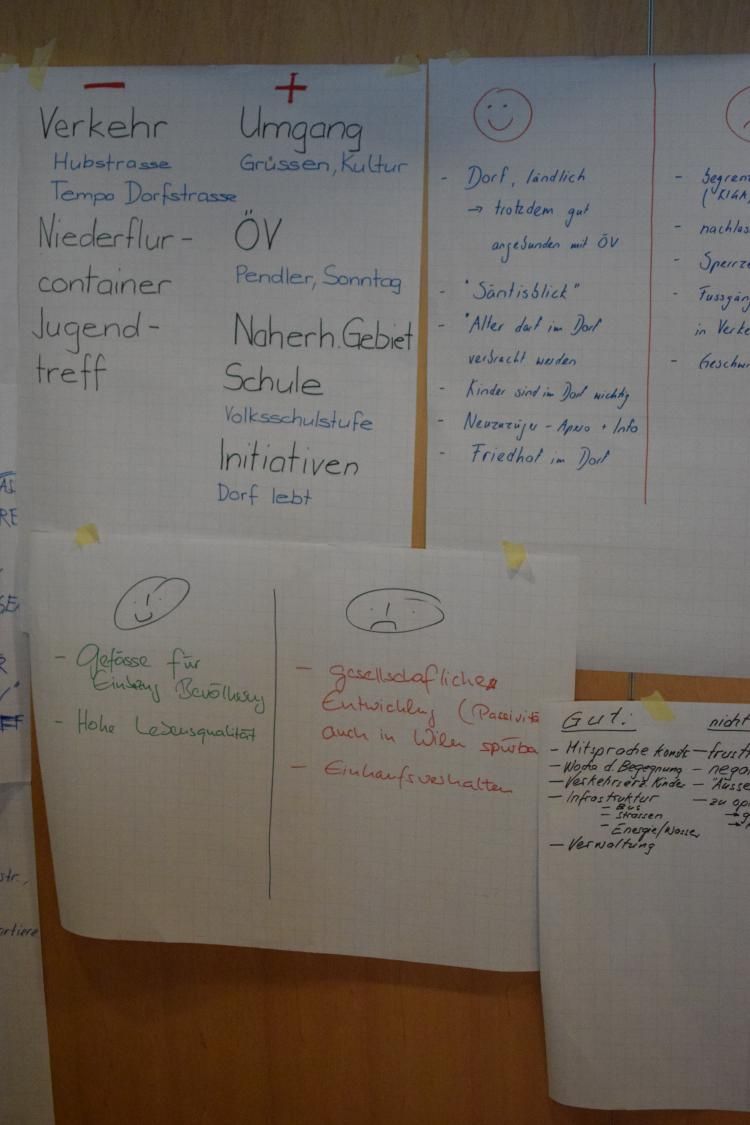 −
Verkehr
Hubstrasse
Tempo Dorfstrasse
Niederflur-
container
Jugend-
treff
+
Umgang
Grüssen, Kultur
ÖV
Pendler, Sonntag
Naherh. Gebiet
Schule
Volksschulstufe
Initiativen
Dorf lebt
- Dorf, ländlich
→ trotzdem gut
angebunden mit ÖV
- "Säntisblick"
- "Alter darf im Dorf
verbracht werden
- Kinder sind im Dorf wichtig
- Neuzuzüger - Apero + Info
- Friedhof im Dorf
- Begren
(KIGA,
- nachlas
- Sperrze
- Fussgän
in Verke
- Geschwi
- Gefässe für
Einbezug Bevölkerung
- Hohe Lebensqualität
- gesellschaftliche
Entwicklung (Passivitä
auch in Wilen spürba
- Einkaufsverhalten
Gut:
- Mitsprache konst
- Woche d. Begegnung
- Verkehrserz. Kinder
- Infrastruktur
- Bus
- Strassen
- Energie/Wasser
- Verwaltung
nicht
- frustr
- nega
- "Ausse
- zu op
AS
RE
SE
R
str.,
ortiere